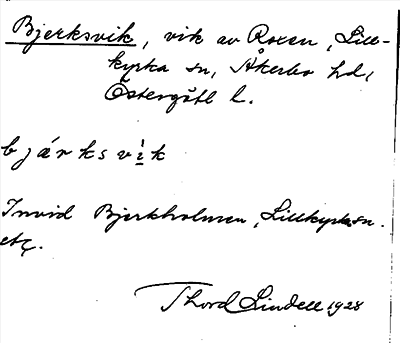 Bjerksvik, vik av Roxen, Lill-
kyrka sn, Åkerbo hd,
Östergötl l.
bjárksvìk
Invid Bjerkholmen, Lillkyrka sn.
etc.
Thord Lindell 1928